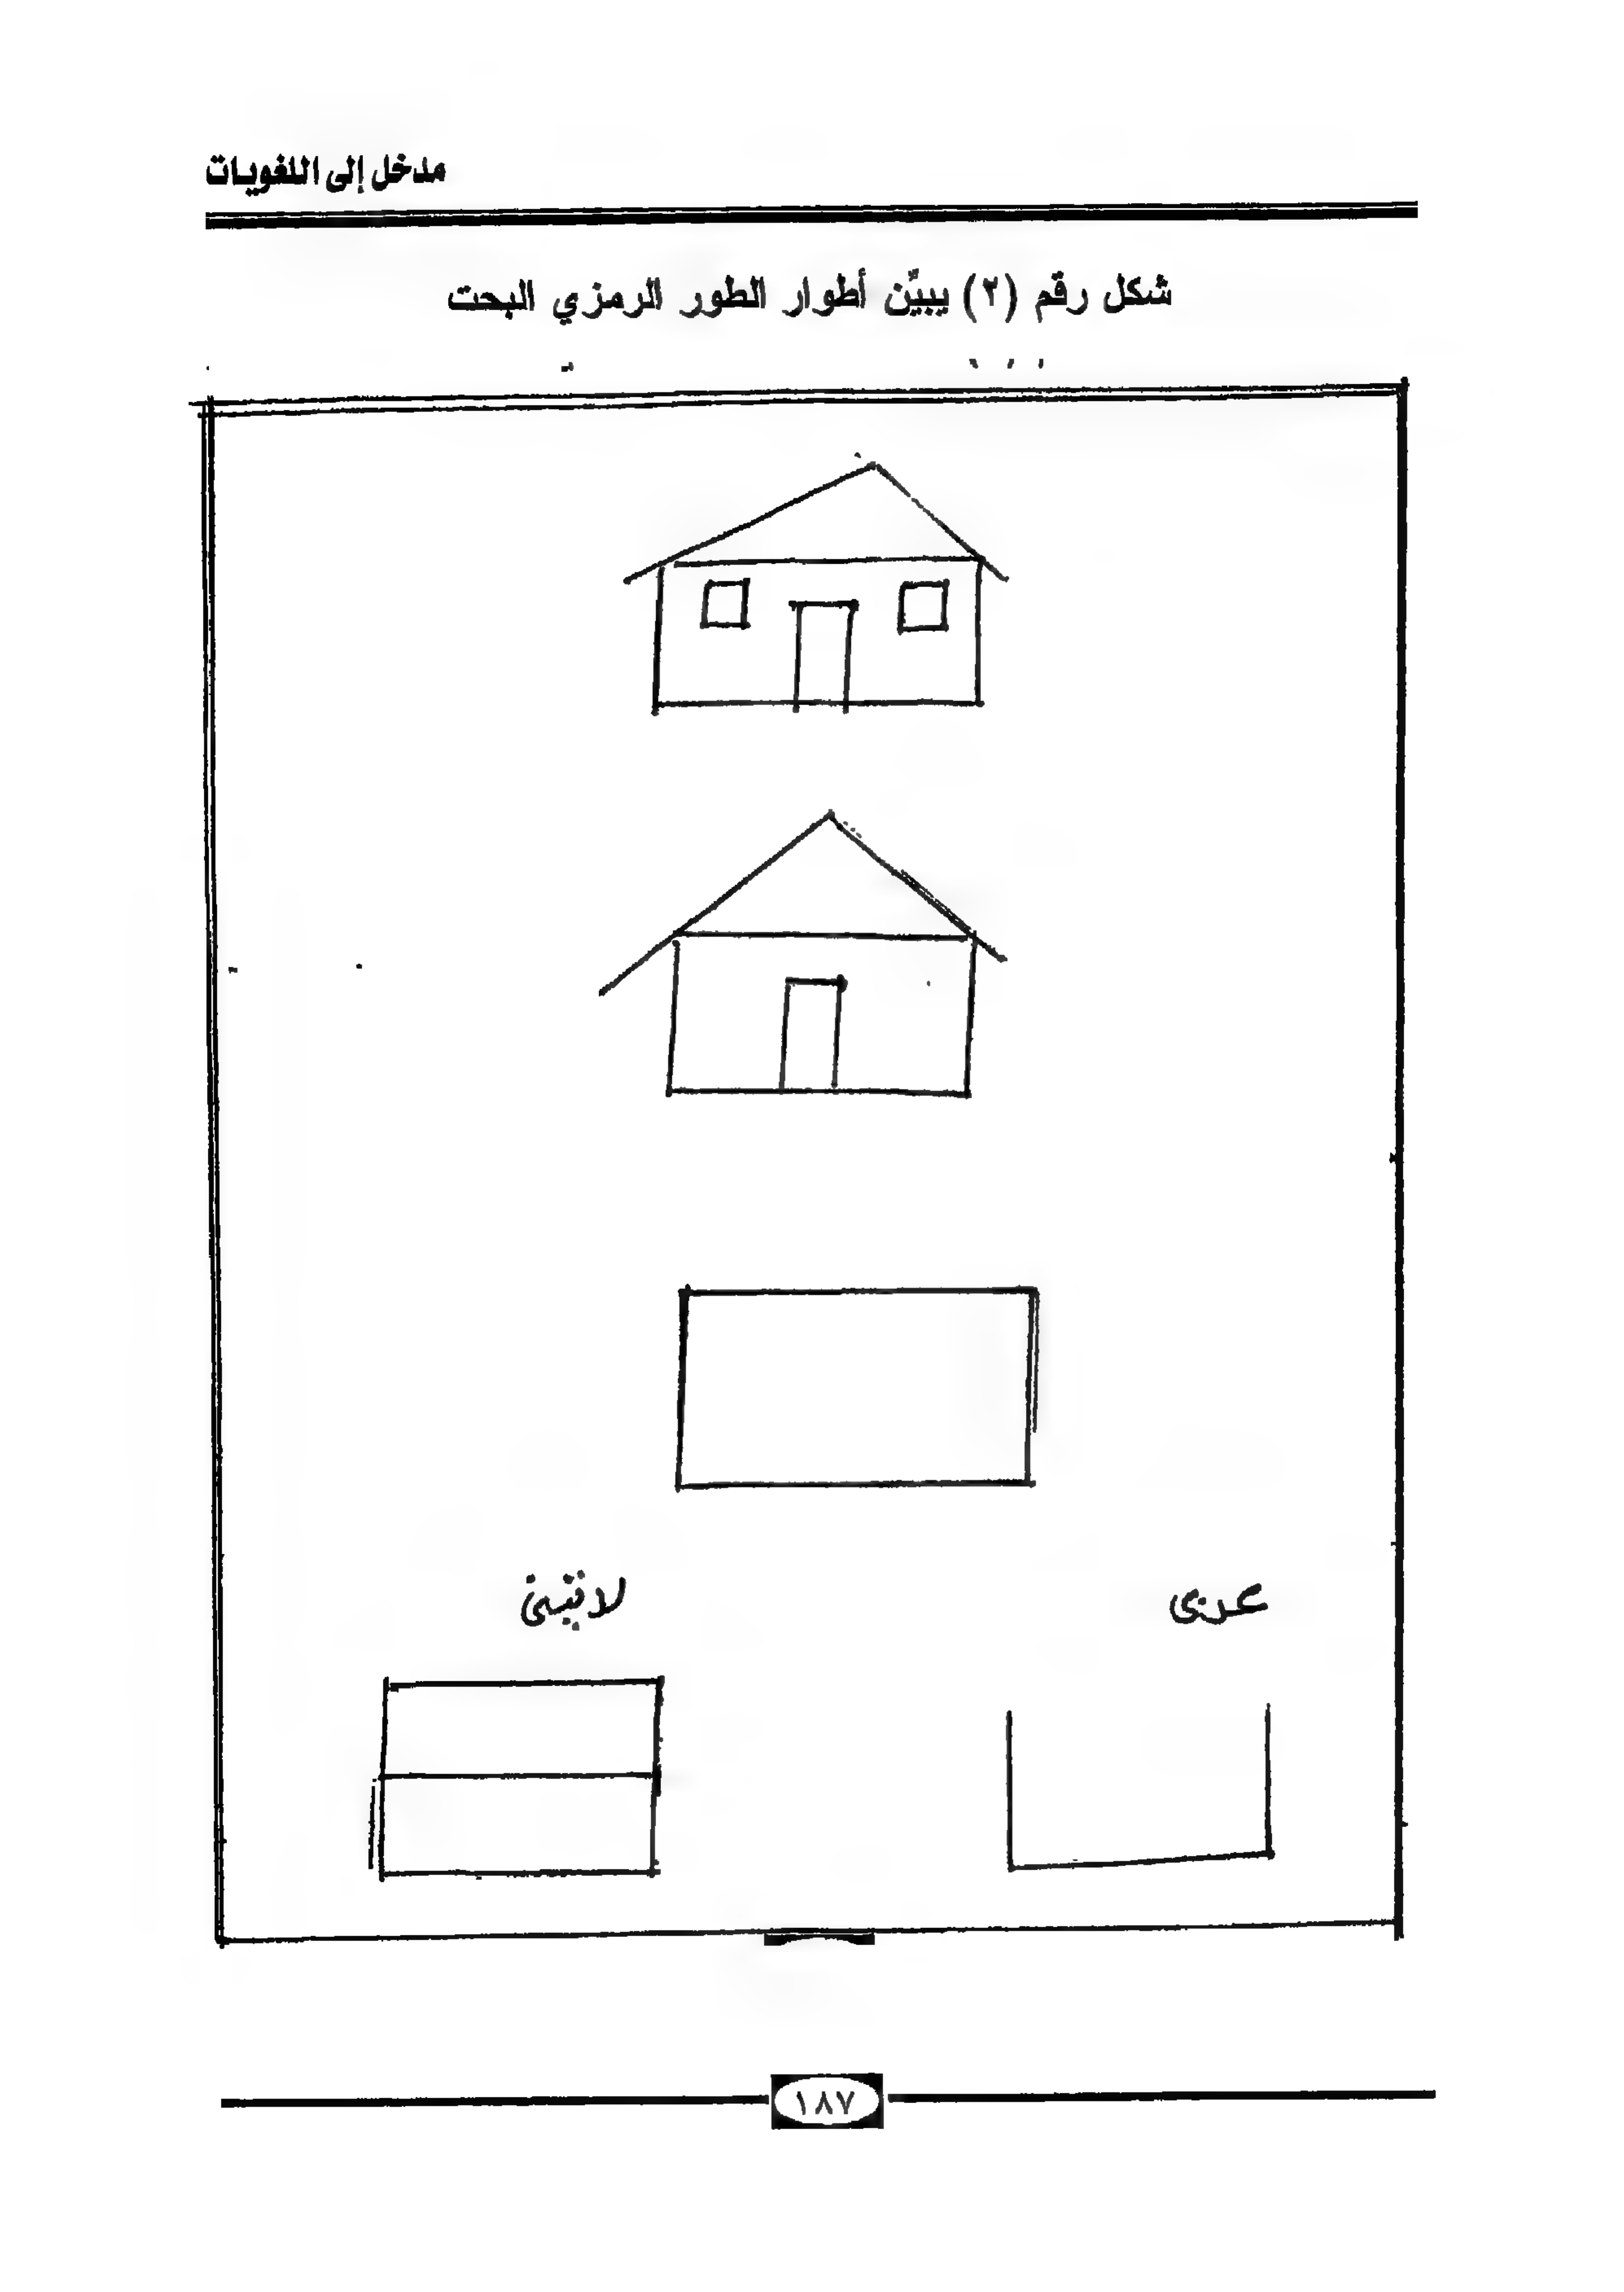 مدخل إلى اللغويات
شكل رقم (٢) يبيِّن أطوار الطور الرمزي البحت
عربى
لاتينى
١٨٧